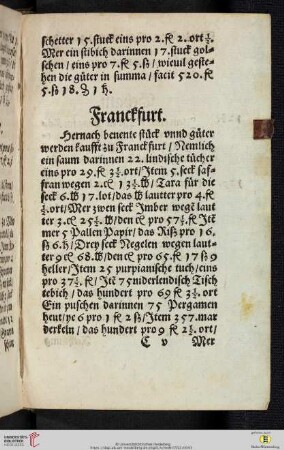 schetter 15. stuck eins pro 2. fl 2. ort ½.
Mer ein stibich darinnen 17. stuck gol-
schen / eins pro 7. fl 5. ß / wieuil geste-
hen die güter in summa / facit 520. fl
5. ß 18. ₰ 1 h.
Franckfurt.
Hernach benente stück vnnd güter
werden kaufft zu Franckfurt / Nemlich
ein saum darinnen 22. lindische tücher
eins pro 29. fl 3½. ort / Item 5. seck saf-
fran wegen 2. ct 13½. ℔ / Tara für die
seck 6. ℔ 17. lot / das ℔ lautter pro 4. fl
½. ort / Mer zwen seck Imber wegē laut
ter 3. ct 25½. ℔ / den ct pro 57½. fl Itē
mer 5 Pallen Papir / das Riß pro 16.
ß 6. h / Drey seck Negelen wegen laut-
ter 9 ct 68. ℔ / den ct pro 65. fl 17 ß 9
heller / Item 25 purpianische tuch / eins
pro 37½. fl / Itē 75 niderlendisch Tisch
tebich / das hundert pro 69 fl 3½. ort
Ein puschen darinnen 75 Pergamen
heut / ye 6 pro 1 fl 2 ß / Item 357. mar
derkeln / das hundert pro 9 fl 2½. ort /
C v Mer